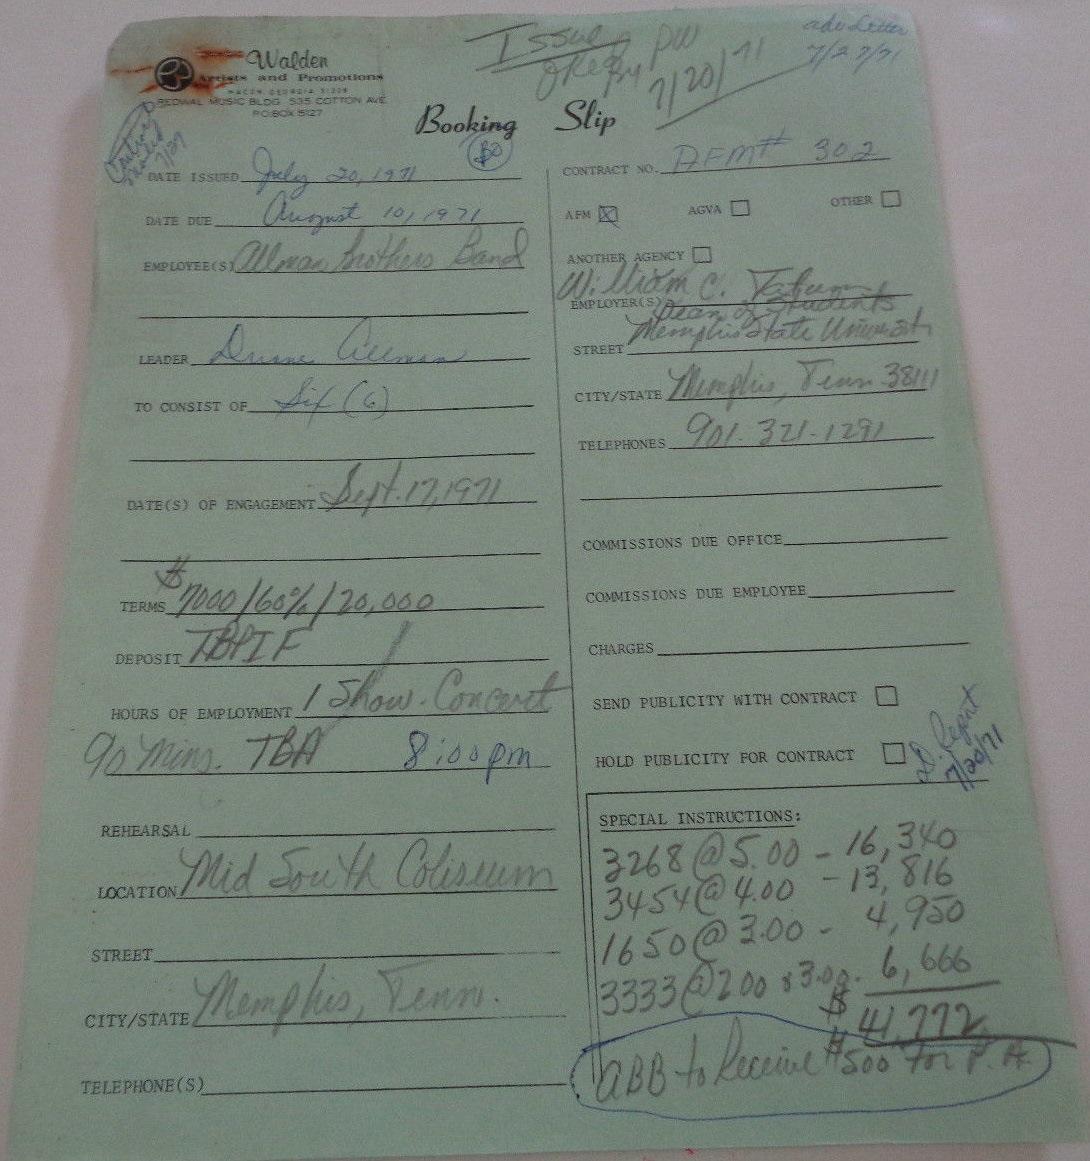 Issue pw
OKed by 7/20/71
adv Letter
7/27/71
Walden
Artists and Promotions
MACON, GEORGIA 31208
REDWAL MUSIC BLDG. 535 COTTON AVE
P.O. BOX 5127
Booking Slip
7/27
DATE ISSUED July 20, 1971
DATE DUE August 10, 1971
EMPLOYEE(S) Allman Brothers Band
LEADER Duane Allman
TO CONSIST OF Six (6)
DATE(S) OF ENGAGEMENT Sept. 17, 1971
TERMS $7000/60%/20,000
DEPOSIT TBPIF
HOURS OF EMPLOYMENT 1 Show - Concert
90 Mins. TBA 8:00 pm
REHEARSAL
LOCATION Mid South Coliseum
STREET
CITY/STATE Memphis, Tenn.
TELEPHONE(S)
CONTRACT NO. AFM# 302
AFM AGVA OTHER
ANOTHER AGENCY
William C. Tatum
EMPLOYER(S) Dean of Students
Memphis State University
STREET
CITY/STATE Memphis, Tenn. 38111
TELEPHONES 901-321-1291
COMMISSIONS DUE OFFICE
COMMISSIONS DUE EMPLOYEE
CHARGES
SEND PUBLICITY WITH CONTRACT
HOLD PUBLICITY FOR CONTRACT
7/20/71
SPECIAL INSTRUCTIONS:
3268 @ 5.00 - 16,340
3454 @ 4.00 - 13,816
1650 @ 3.00 - 4,950
3333 @ 2.00 & 3.00. 6,666
$ 41,772
ABB to Receive $500 for P.A.